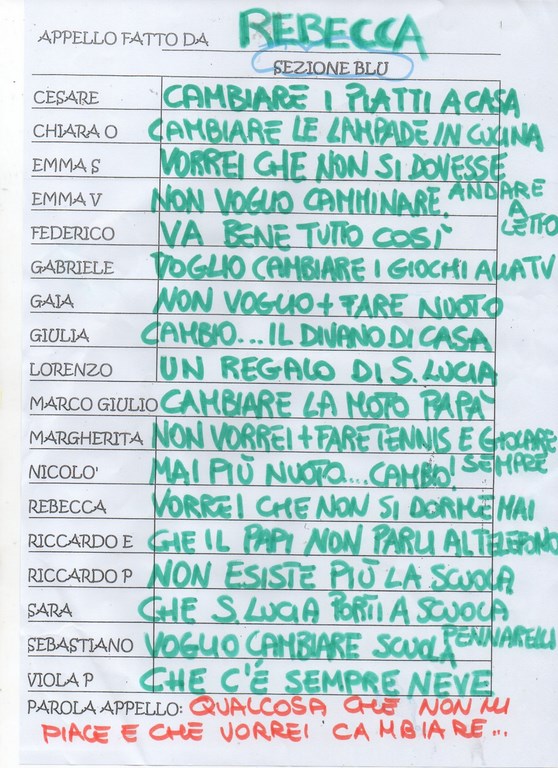 APPELLO FATTO DA REBECCA
SEZIONE BLU
CESARE CAMBIARE I PIATTI A CASA
CHIARA O CAMBIARE LE LAMPADE IN CUCINA
EMMA S VORREI CHE NON SI DOVESSE ANDARE A LETTO
EMMA V NON VOGLIO CAMMINARE.
FEDERICO VA BENE TUTTO COSÌ
GABRIELE VOGLIO CAMBIARE I GIOCHI ALLA TV
GAIA NON VOGLIO + FARE NUOTO
GIULIA CAMBIO... IL DIVANO DI CASA
LORENZO UN REGALO DI S. LUCIA
MARCO GIULIO CAMBIARE LA MOTO PAPÀ
MARGHERITA NON VORREI + FARE TENNIS E GIOCARE SEMPRE
NICOLO' MAI PIÙ NUOTO... CAMBIO!
REBECCA VORREI CHE NON SI DORME MAI
RICCARDO E CHE IL PAPI NON PARLI AL TELEFONO
RICCARDO P NON ESISTE PIÙ LA SCUOLA
SARA CHE S. LUCIA PORTI A SCUOLA PENNARELLI
SEBASTIANO VOGLIO CAMBIARE SCUOLA
VIOLA P CHE C'É SEMPRE NEVE
PAROLA APPELLO: QUALCOSA CHE NON MI
PIACE E CHE VORREI CAMBIARE...